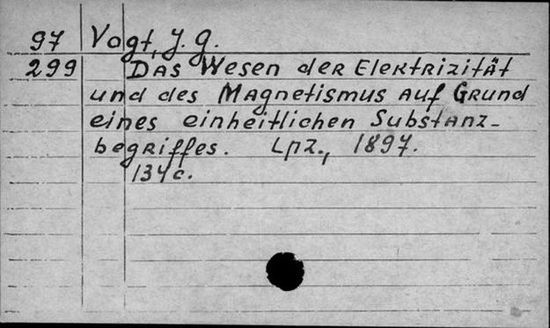 97 Vogt, J. G.
299 Das Wesen der Elektrizität
und des Magnetismus auf Grund
eines einheitlichen Substanz-
begriffes. Lpz., 1897.
134 c.